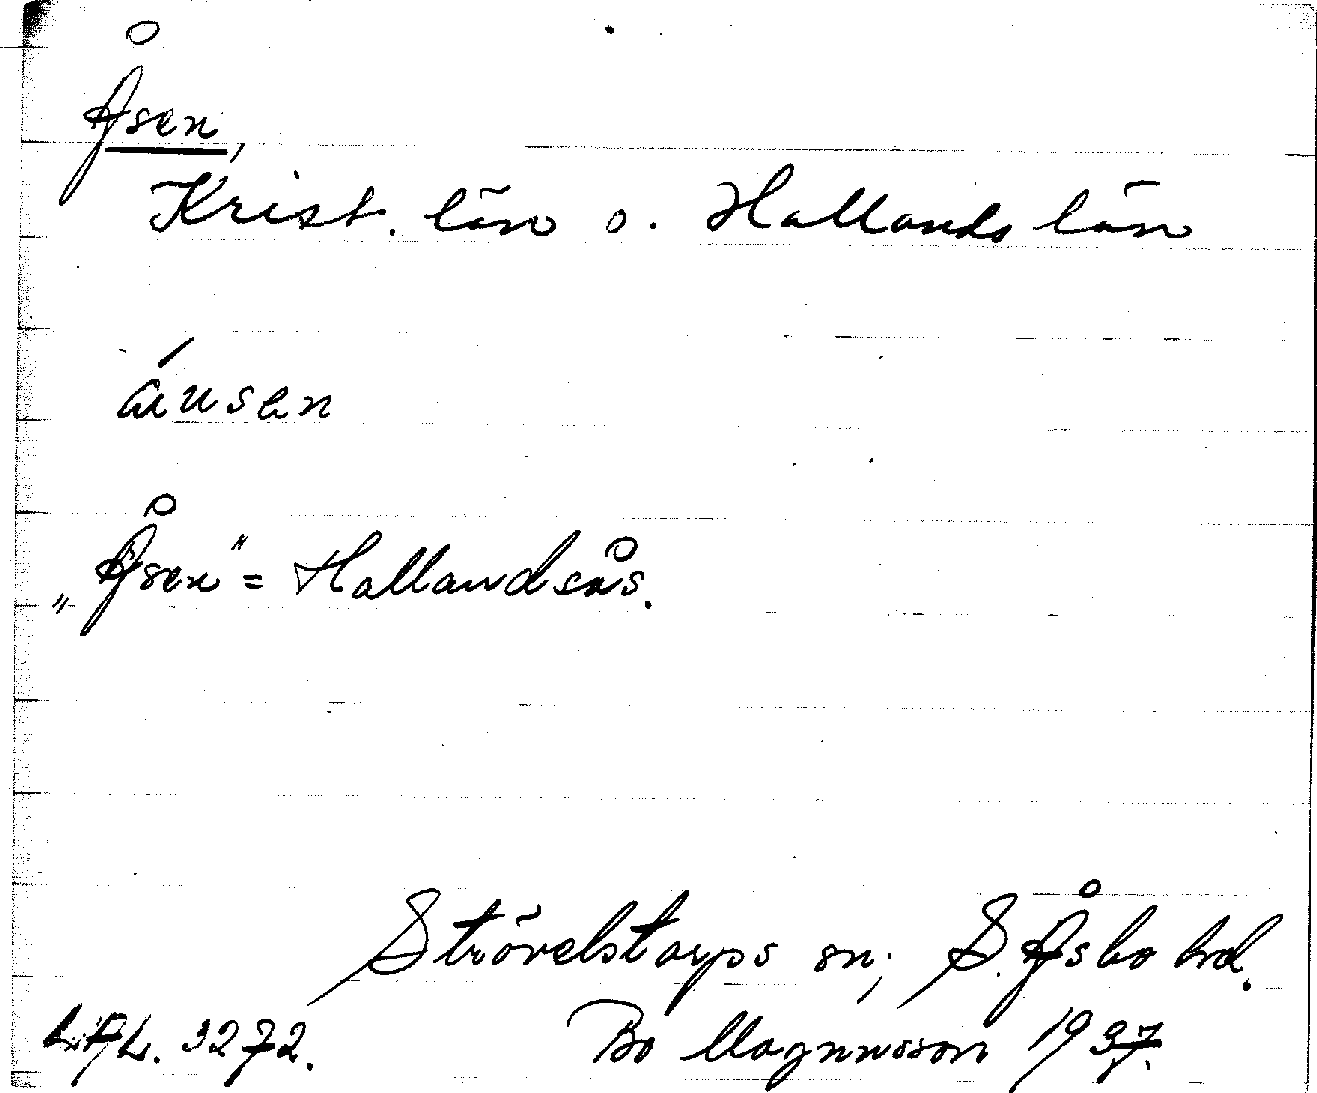 Åsen,
Krist. län o. Hallands län
áusen
„Åsen" = Hallandsås.
Strövelstorps sn; S. Åsbo hd.
LAL. 3272. Bo Magnusson 1937.